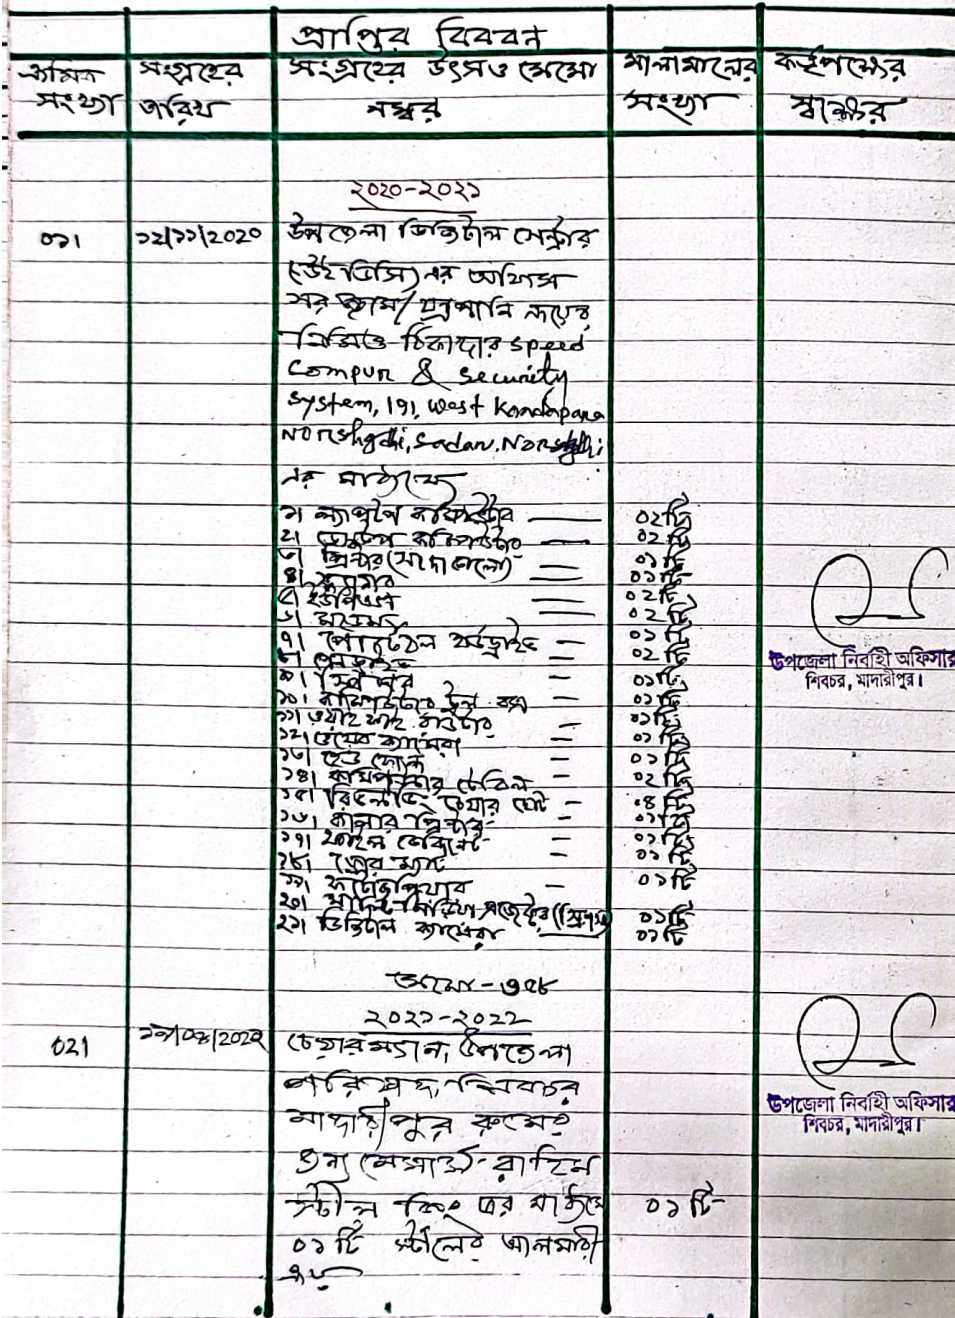 প্রাপ্তির বিবরন
ক্রমিক সংখ্যা
সংগ্রহের তারিখ
সংগ্রহের উৎস ও মেমো নম্বর
মালামালের সংখ্যা
কর্তৃপক্ষের স্বাক্ষর
২০২০-২০২১
০১। ১২/১১/২০২০ উপজেলা ডিজিটাল সেন্টার
(ইউডিসি) এর অফিস
সরঞ্জাম/যন্ত্রপাতি ক্রয়ের
নিমিত্তে ঠিকাদার speed
Compun & Security
System, 191, West Kandapara
Norshgdi, Sadar, Norshgdi
এর মাধ্যমে
১। ল্যাপটপ কম্পিউটার — ০২টি
২। ডেস্কটপ কম্পিউটার — ০২টি
৩। প্রিন্টার (সাদা কালো) — ০১টি
৪। স্ক্যানার — ০১টি
৫। ইউপিএস — ০২টি
৬। মডেম — ০২টি
৭। পোর্টেবল হার্ডড্রাইভ — ০১টি
৮। পেনড্রাইভ — ০২টি
৯। স্পিকার — ০১টি
১০। কম্পিউটার টুল বক্স — ০১টি
১১। ওয়াই ফাই রাউটার — ০১টি
১২। ওয়েব ক্যামেরা — ০১টি
১৩। হেড ফোন — ০১টি
১৪। কম্পিউটার টেবিল — ০২টি
১৫। রিভলভিং চেয়ার — ০৪টি
১৬। কালার প্রিন্টার — ০১টি
১৭। ফাইল কেবিনেট — ০১টি
১৮। ফ্লোর ম্যাট — ০১টি
১৯। ফটোকপিয়ার — ০১টি
২০। মাল্টিমিডিয়া প্রজেক্টর (স্ক্রিনসহ) ০১টি
২১। ডিজিটাল ক্যামেরা ০১টি
উপজেলা নির্বাহী অফিসার
শিবচর, মাদারীপুর।
২০২১-২০২২
০২। চেয়ারম্যান, উপজেলা
পরিষদ শিবচর
মাদারীপুর রুমের
জন্য মেসার্স রাহিম
স্টীল কিং এর মাধ্যমে ০১টি
০১টি স্টীলের আলমারী
ক্রয়
উপজেলা নির্বাহী অফিসার
শিবচর, মাদারীপুর।